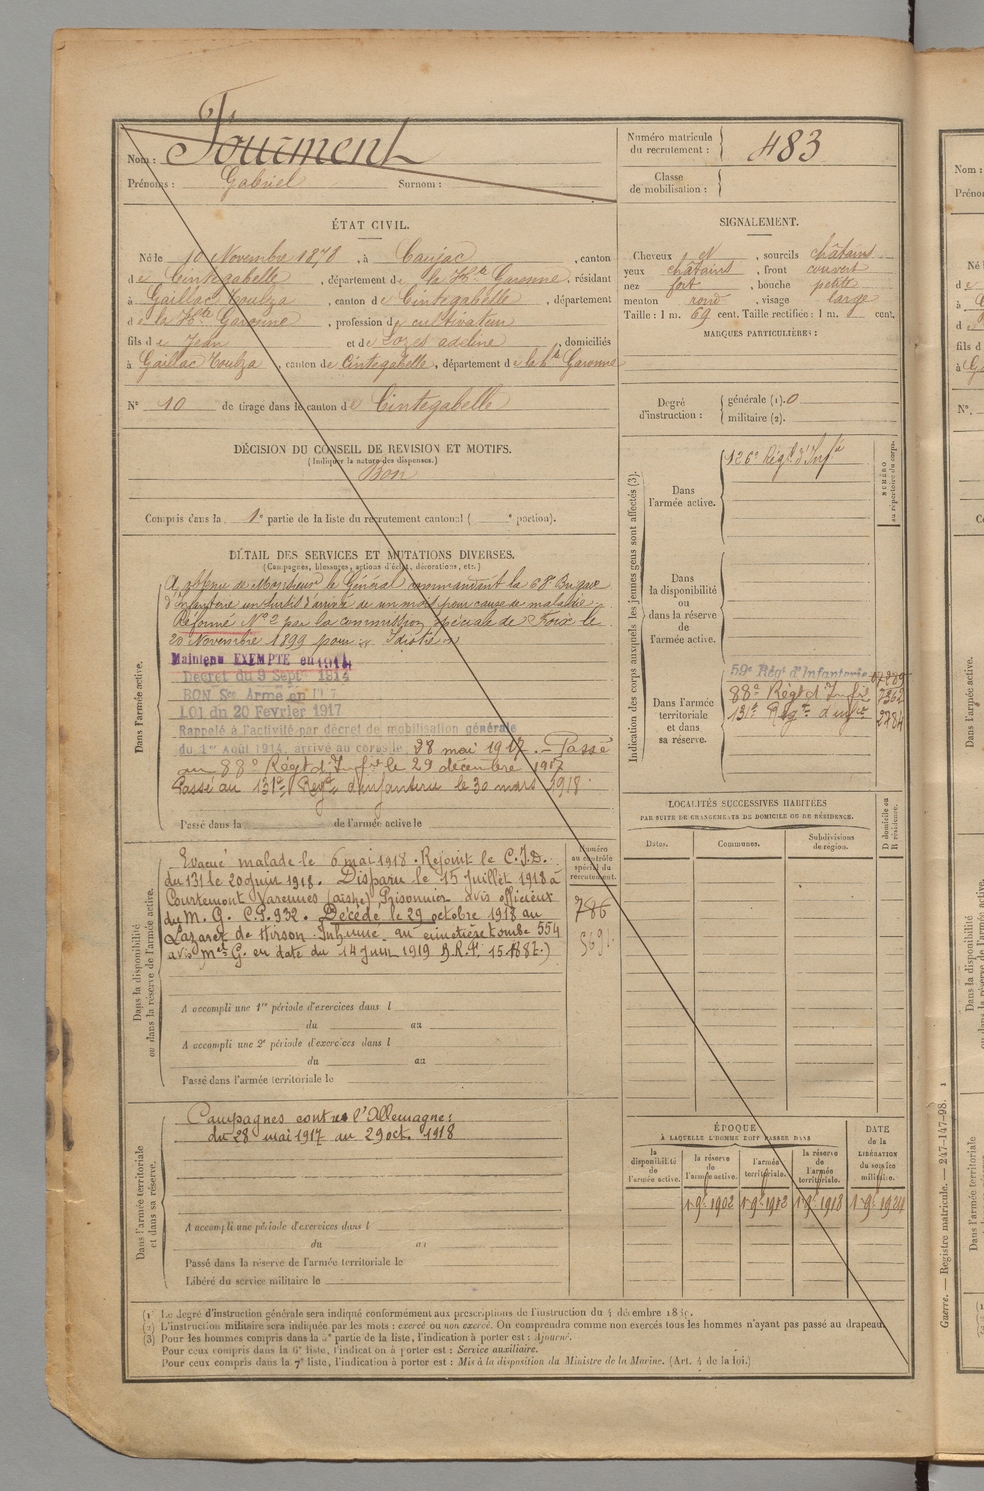 Nom : Fourment
Prénoms : Gabriel Surnom :
Numéro matricule du recrutement : 483
Classe de mobilisation :
ÉTAT CIVIL.
Né le 10 Novembre 1878, à Caujac, canton
de Cintegabelle, département de la Hte Garonne, résidant
à Gaillac Toulza, canton de Cintegabelle, département
de la Hte Garonne, profession de cultivateur
fils de Jean et de adeline, domiciliés
à Gaillac Toulza, canton de Cintegabelle, département de la Hte Garonne
N° 10 de tirage dans le canton de Cintegabelle
SIGNALEMENT.
Cheveux et, sourcils châtains
yeux châtains, front couvert
nez fort, bouche petite
menton rond, visage large
Taille : 1 m. 69 cent. Taille rectifiée : 1 m. cent.
MARQUES PARTICULIÈRES :
Degré d'instruction : générale (1). 0
militaire (2).
DÉCISION DU CONSEIL DE REVISION ET MOTIFS.
(Indiquer la nature des dispenses.)
Bon
Compris dans la 1e partie de la liste du recrutement cantonal ( e portion).
DÉTAIL DES SERVICES ET MUTATIONS DIVERSES.
(Campagnes, blessures, actions d'éclat, décorations, etc.)
Dans l'armée active.
A obtenu de Monsieur le Général commandant la 68e Brigade
d'infanterie un sursis d'arrivée de un mois pour cause de maladie.
Réformé N° 2 par la commission spéciale de Foix le
20 Novembre 1899 pour
Maintenu EXEMPTE en 1914
Décret du 9 Sept. 1914
BON Sce Armé en 1917
LOI du 20 Fevrier 1917
Rappelé à l'activité par décret de mobilisation générale
du 1er Août 1914, arrivé au corps le 28 mai 1917. - Passé
au 88e Régt d'Infie le 29 décembre 1917
Passé au 131e Regt d'infanterie le 30 mars 1918.
Passé dans la de l'armée active le
Indication des corps auxquels les jeunes gens sont affectés (3).
NUMÉRO au répertoire du corps.
Dans l'armée active.
126e Régt d'Infie
Dans la disponibilité ou dans la réserve de l'armée active.
Dans l'armée territoriale et dans sa réserve.
59e Régt d'Infanterie
88e Régt d'Infie 7362
131e Regt d'infie 2784
LOCALITÉS SUCCESSIVES HABITÉES
PAR SUITE DE CHANGEMENTS DE DOMICILE OU DE RÉSIDENCE.
Dates. Communes. Subdivisions de région. D domicile ou R résidence.
Dans la disponibilité ou dans la réserve de l'armée active.
Numéro au contrôle spécial du recrutement.
786
Evacué malade le 6 mai 1918. Rejoint le C.I.D.
du 131 le 20 juin 1918. Disparu le 15 juillet 1918 à
Courtemont Varennes (aisne) Prisonnier avis officieux
du M. G. C.P. 932. Décédé le 29 octobre 1918 au
Lazaret de Hirson. Inhumé au cimetière tombe 554
avis Mre G. en date du 14 juin 1919
A accompli une 1re période d'exercices dans l
du au
A accompli une 2e période d'exercices dans l
du au
Passé dans l'armée territoriale le
Dans l'armée territoriale et dans sa réserve.
Campagnes contre l'Allemagne :
du 28 mai 1917 au 29 oct. 1918
A accompli une période d'exercices dans l
du au
Passé dans la réserve de l'armée territoriale le
Libéré du service militaire le
ÉPOQUE
À LAQUELLE L'HOMME DOIT PASSER DANS
la disponibilité de l'armée active. la réserve de l'armée active. l'armée territoriale. la réserve de l'armée territoriale.
DATE de la LIBÉRATION du service militaire.
1 9e 1902 1 9e 1912 1 9e 1918 1 9e 1924
(1) Le degré d'instruction générale sera indiqué conformément aux prescriptions de l'instruction du 4 décembre
(2) L'instruction militaire sera indiquée par les mots : exercé ou non exercé. On comprendra comme non exercés tous les hommes n'ayant pas passé au drapeau.
(3) Pour les hommes compris dans la 5e partie de la liste, l'indication à porter est : Ajourné.
Pour ceux compris dans la 6e liste, l'indication à porter est : Service auxiliaire.
Pour ceux compris dans la 7e liste, l'indication à porter est : Mis à la disposition du Ministre de la Marine. (Art. 4 de la loi.)
Guerre. — Registre matricule. — 247-147-98. 1
Nom :